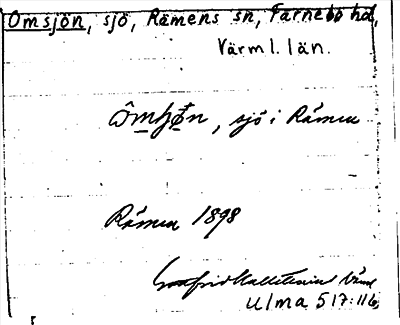 Omsjön, sjö, Rämens sn, Färnebo hd,
Värml. län.
sjö i Rämen
Rämen 1898
Gottfrid Kallstenius Värml
Ulma 517:116